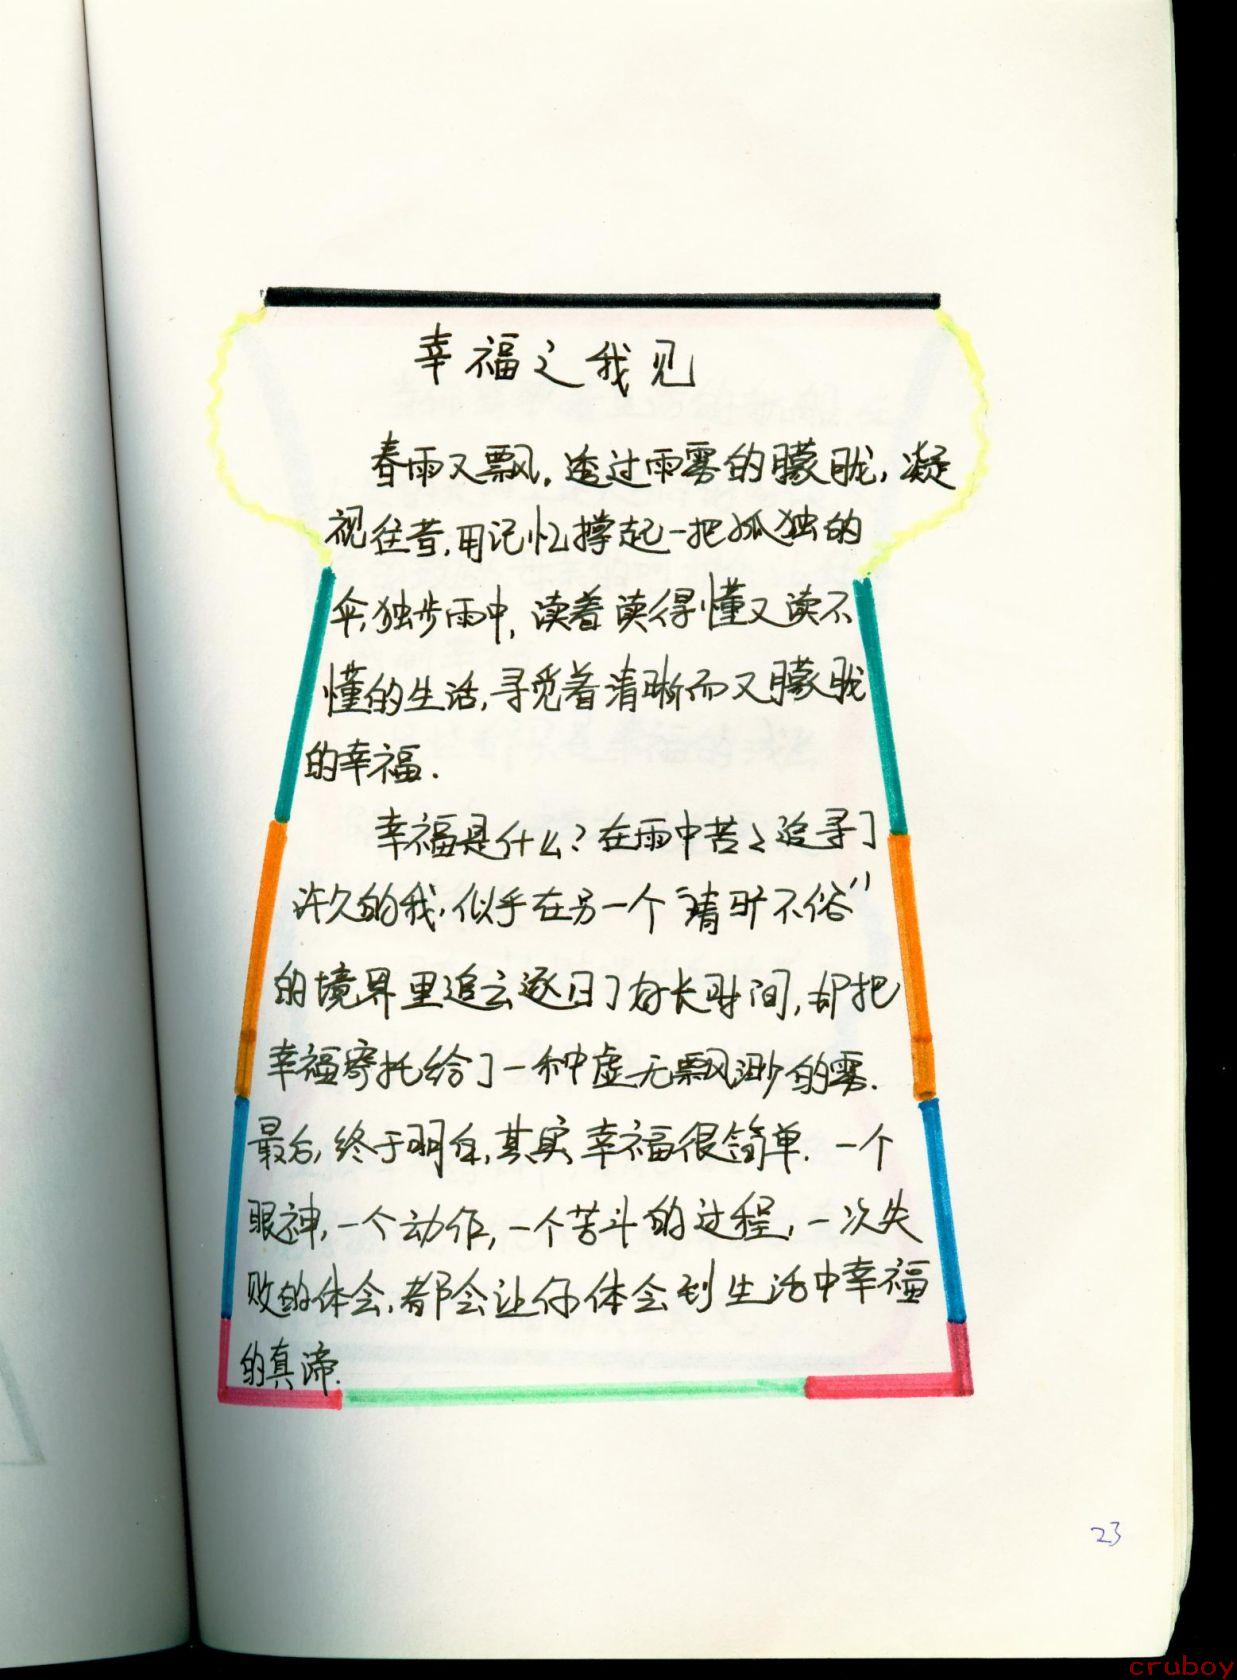 幸福之我见
春雨又飘，透过雨雾的朦胧，凝
视往昔，用记忆撑起一把孤独的
伞，独步雨中，读着读得懂又读不
懂的生活，寻觅着清晰而又朦胧
的幸福.
幸福是什么？在雨中苦々追寻了
许久的我，似乎在另一个“清旷不俗”
的境界里追云逐日了好长时间，却把
幸福寄托给了一种虚无飘渺的雾.
最后，终于明白，其实幸福很简单. 一个
眼神，一个动作，一个苦斗的过程，一次失
败的体会，都会让你体会到生活中幸福
的真谛.
23
cruboy